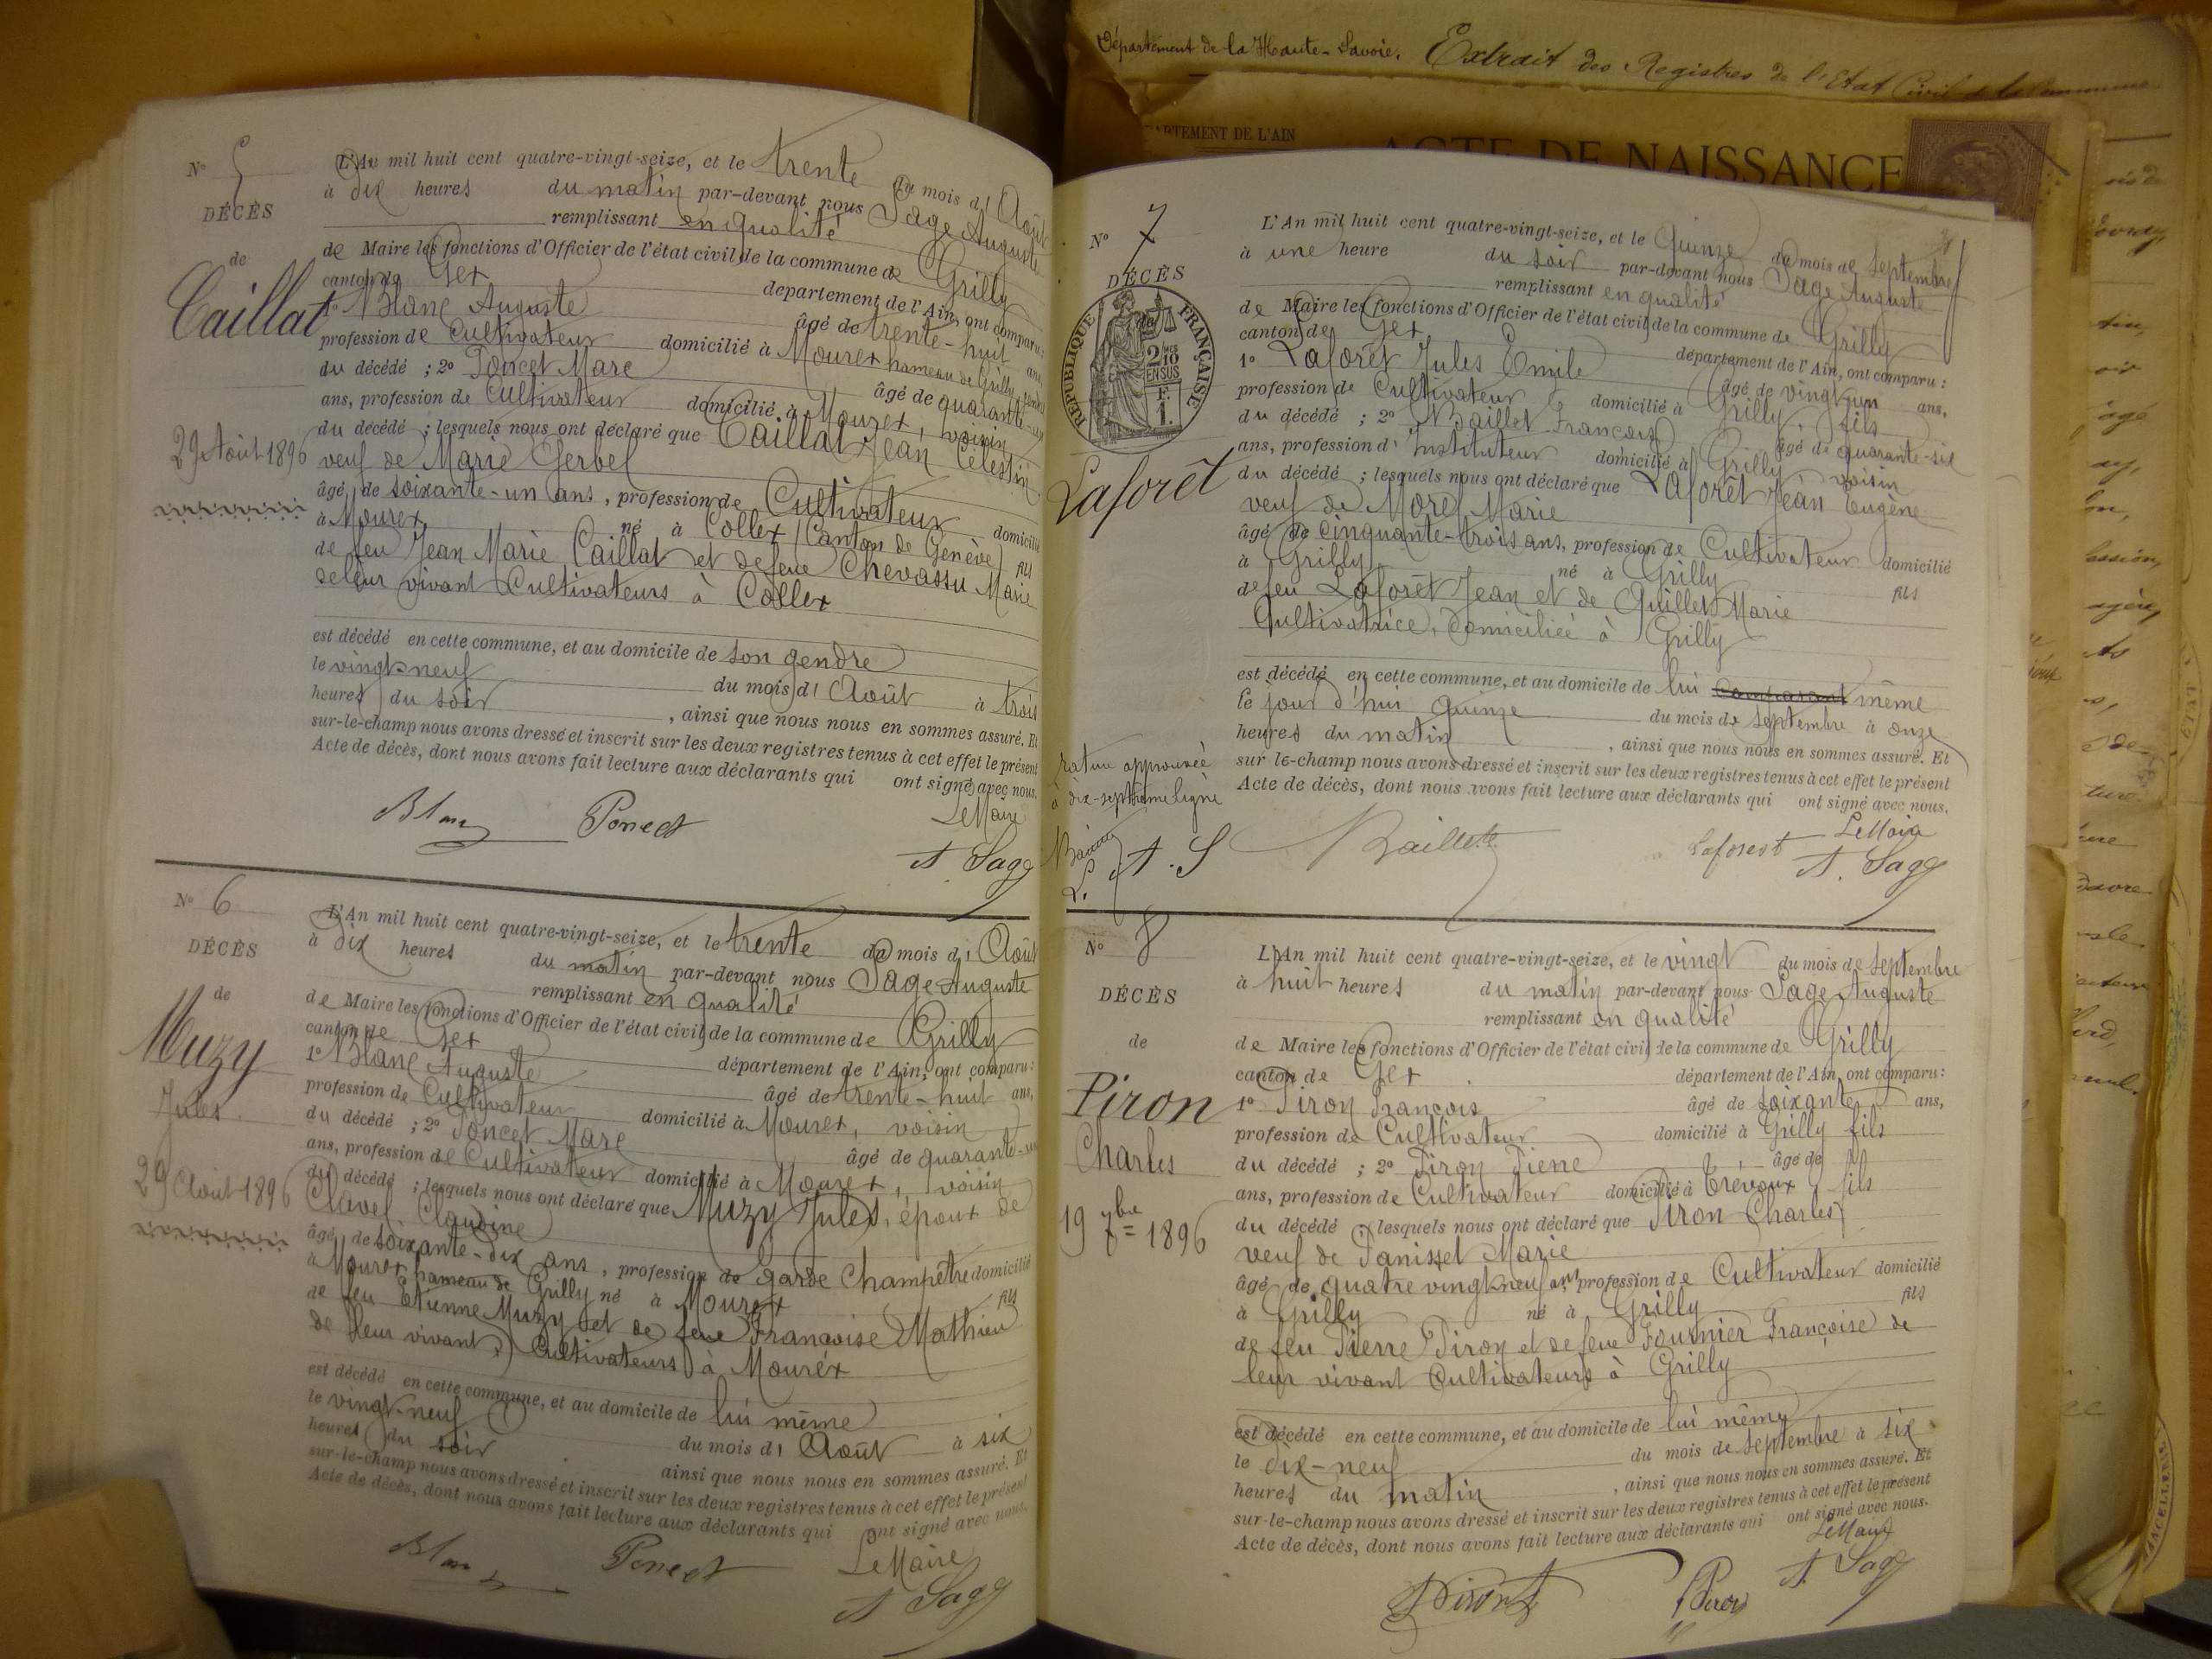 Département de la Haute-Savoie. Extrait des Registres de l'Etat Civil de la Commune
DÉPARTEMENT DE L'AIN
ACTE DE NAISSANCE
N° 5
DÉCÈS
de
Caillat
29 Août 1896
L'An mil huit cent quatre-vingt-seize, et le trente du mois d'Août
à dix heures du matin par-devant nous Sage Auguste
remplissant en qualité
de Maire les fonctions d'Officier de l'état civil de la commune de Grilly
canton de Gex département de l'Ain, ont comparu:
1° Blanc Auguste âgé de trente-huit ans,
profession de Cultivateur domicilié à Mourex hameau de Grilly, gendre
du décédé ; 2° Poncet Marc âgé de quarante-un
ans, profession de Cultivateur domicilié à Mourex, voisin
du décédé ; lesquels nous ont déclaré que Caillat Jean Célestin
veuf de Marie Gerbel
âgé de soixante-un ans, profession de Cultivateur domicilié
à Mourex né à Collex (Canton de Genève) fils
de feu Jean Marie Caillat et de feue Chevassu Marie
de leur vivant Cultivateurs à Collex
est décédé en cette commune, et au domicile de son gendre
le vingt-neuf du mois d'Août à trois
heures du soir, ainsi que nous nous en sommes assuré. Et
sur-le-champ nous avons dressé et inscrit sur les deux registres tenus à cet effet le présent
Acte de décès, dont nous avons fait lecture aux déclarants qui ont signé avec nous.
Blanc Poncet Le Maire
A Sage
N° 6
DÉCÈS
de
Muzy
Jules
29 Août 1896
L'An mil huit cent quatre-vingt-seize, et le trente du mois d'Août
à dix heures du matin par-devant nous Sage Auguste
remplissant en qualité
de Maire les fonctions d'Officier de l'état civil de la commune de Grilly
canton de Gex département de l'Ain, ont comparu:
1° Blanc Auguste âgé de trente-huit ans,
profession de Cultivateur domicilié à Mourex, voisin
du décédé ; 2° Poncet Marc âgé de quarante-un
ans, profession de Cultivateur domicilié à Mourex, voisin
du décédé ; lesquels nous ont déclaré que Muzy Jules, époux de
Clavel Claudine
âgé de soixante-dix ans, profession de garde Champêtre domicilié
à Mourex hameau de Grilly né à Mourex fils
de feu Etienne Muzy et de feue Françoise Mathieu
de leur vivant Cultivateurs à Mouréx
est décédé en cette commune, et au domicile de lui même
le vingt-neuf du mois d'Août à six
heures du soir ainsi que nous nous en sommes assuré. Et
sur-le-champ nous avons dressé et inscrit sur les deux registres tenus à cet effet le présent
Acte de décès, dont nous avons fait lecture aux déclarants qui ont signé avec nous.
Blanc Poncet Le Maire
A Sage
N° 7
DÉCÈS
de
RÉPUBLIQUE FRANÇAISE
2/10mes
EN SUS
F.
1.
Laforêt
rature approuvée
à dix-septième ligne
L. A. S
L'An mil huit cent quatre-vingt-seize, et le quinze du mois de septembre
à une heure du soir par-devant nous Sage Auguste
remplissant en qualité
de Maire les fonctions d'Officier de l'état civil de la commune de Grilly
canton de Gex département de l'Ain, ont comparu:
1° Laforêt Jules Emile âgé de vingt-un ans,
profession de Cultivateur domicilié à Grilly, fils
du décédé ; 2° Baillet François âgé de quarante-six
ans, profession d'Instituteur domicilié à Grilly voisin
du décédé ; lesquels nous ont déclaré que Laforêt Jean Eugène
veuf de Morel Marie
âgé de cinquante-trois ans, profession de Cultivateur domicilié
à Grilly né à Grilly fils
de feu Laforêt Jean et de Quillet Marie
Cultivatrice, domiciliée à Grilly
est décédé en cette commune, et au domicile de lui comparant même
le jour d'hui quinze du mois de septembre à onze
heures du matin, ainsi que nous nous en sommes assuré. Et
sur-le-champ nous avons dressé et inscrit sur les deux registres tenus à cet effet le présent
Acte de décès, dont nous avons fait lecture aux déclarants qui ont signé avec nous.
Baillet Laforest Le Maire
A. Sage
N° 8
DÉCÈS
de
Piron
Charles
19 7bre 1896
L'An mil huit cent quatre-vingt-seize, et le vingt du mois de septembre
à huit heures du matin par-devant nous Sage Auguste
remplissant en qualité
de Maire les fonctions d'Officier de l'état civil de la commune de Grilly
canton de Gex département de l'Ain, ont comparu:
1° Piron François âgé de soixante ans,
profession de Cultivateur domicilié à Grilly fils
du décédé ; 2° Piron Pierre âgé de
ans, profession de Cultivateur domicilié à Trévoux fils
du décédé lesquels nous ont déclaré que Piron Charles
veuf de Panisset Marie
âgé de quatre vingt-neuf ans profession de Cultivateur domicilié
à Grilly né à Grilly fils
de feu Pierre Piron et de feue Fournier Françoise de
leur vivant Cultivateurs à Grilly
est décédé en cette commune, et au domicile de lui même
le dix-neuf du mois de septembre à six
heures du matin, ainsi que nous nous en sommes assuré. Et
sur-le-champ nous avons dressé et inscrit sur les deux registres tenus à cet effet le présent
Acte de décès, dont nous avons fait lecture aux déclarants qui ont signé avec nous.
Le Maire
Piron Piron A. Sage